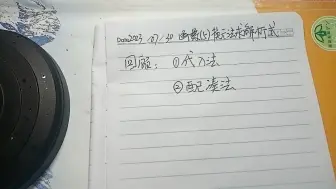 Date 2023 07/30 函数(5)换元法求解析式
回顾：①代入法
②配凑法